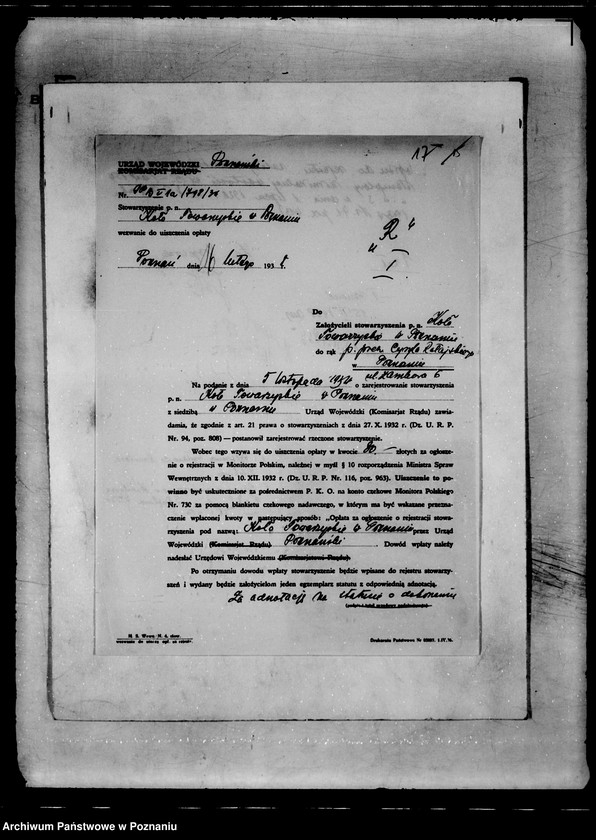 17
URZĄD WOJEWÓDZKI Poznański
KOMISARJAT RZĄDU
Nr.
Stowarzyszenie p. n.
Koło Towarzyskie w Poznaniu
wezwanie do uiszczenia opłaty
"R"
Poznań dnia 16 lutego 193
Do
Założycieli stowarzyszenia p. n. Koło
Towarzyskie w Poznaniu
do rąk p. prez. Cyryla Ratajskiego
w Poznaniu
ul. 6
Na podanie z dnia 5 listopada o zarejestrowanie stowarzyszenia
p. n. Koło Towarzyskie w Poznaniu
z siedzibą w Poznaniu Urząd Wojewódzki (Komisarjat Rządu) zawia-
damia, że zgodnie z art. 21 prawa o stowarzyszeniach z dnia 27. X. 1932 r (Dz. U. R. P.
Nr. 94, poz. 808) — postanowił zarejestrować rzeczone stowarzyszenie.
Wobec tego wzywa się do uiszczenia opłaty w kwocie złotych za ogłosze-
nie o rejestracji w Monitorze Polskim, należnej w myśl § 10 rozporządzenia Ministra Spraw
Wewnętrznych z dnia 10. XII. 1932 r (Dz. U. R. P. Nr. 116, poz. 963). Uiszczenie to po-
winno być uskutecznione za pośrednictwem P. K. O. na konto czekowe Monitora Polskiego
Nr. 730 za pomocą blankietu czekowego nadawczego, w którym ma być wskazane przezna-
czenie wpłaconej kwoty w następujący sposób: „Opłata za ogłoszenie o rejestracji stowa-
rzyszenia pod nazwą: Koło Towarzyskie w Poznaniu przez Urząd
Wojewódzki (Komisarjat Rządu) Poznański. Dowód wpłaty należy
nadesłać Urzędowi Wojewódzkiemu (Komisarjatowi Rządu).
Po otrzymaniu dowodu wpłaty stowarzyszenie będzie wpisane do rejestru stowarzy-
szeń i wydany będzie założycielom jeden egzemplarz statutu z odpowiednią adnotacją.
Za adnotację na statucie o dokonaniu
M. S. Wewn./N. 4. stow.
wezwanie do uiszcz. opł. za rejestr.
Drukarnia Państwowa Nr
Archiwum Państwowe w Poznaniu